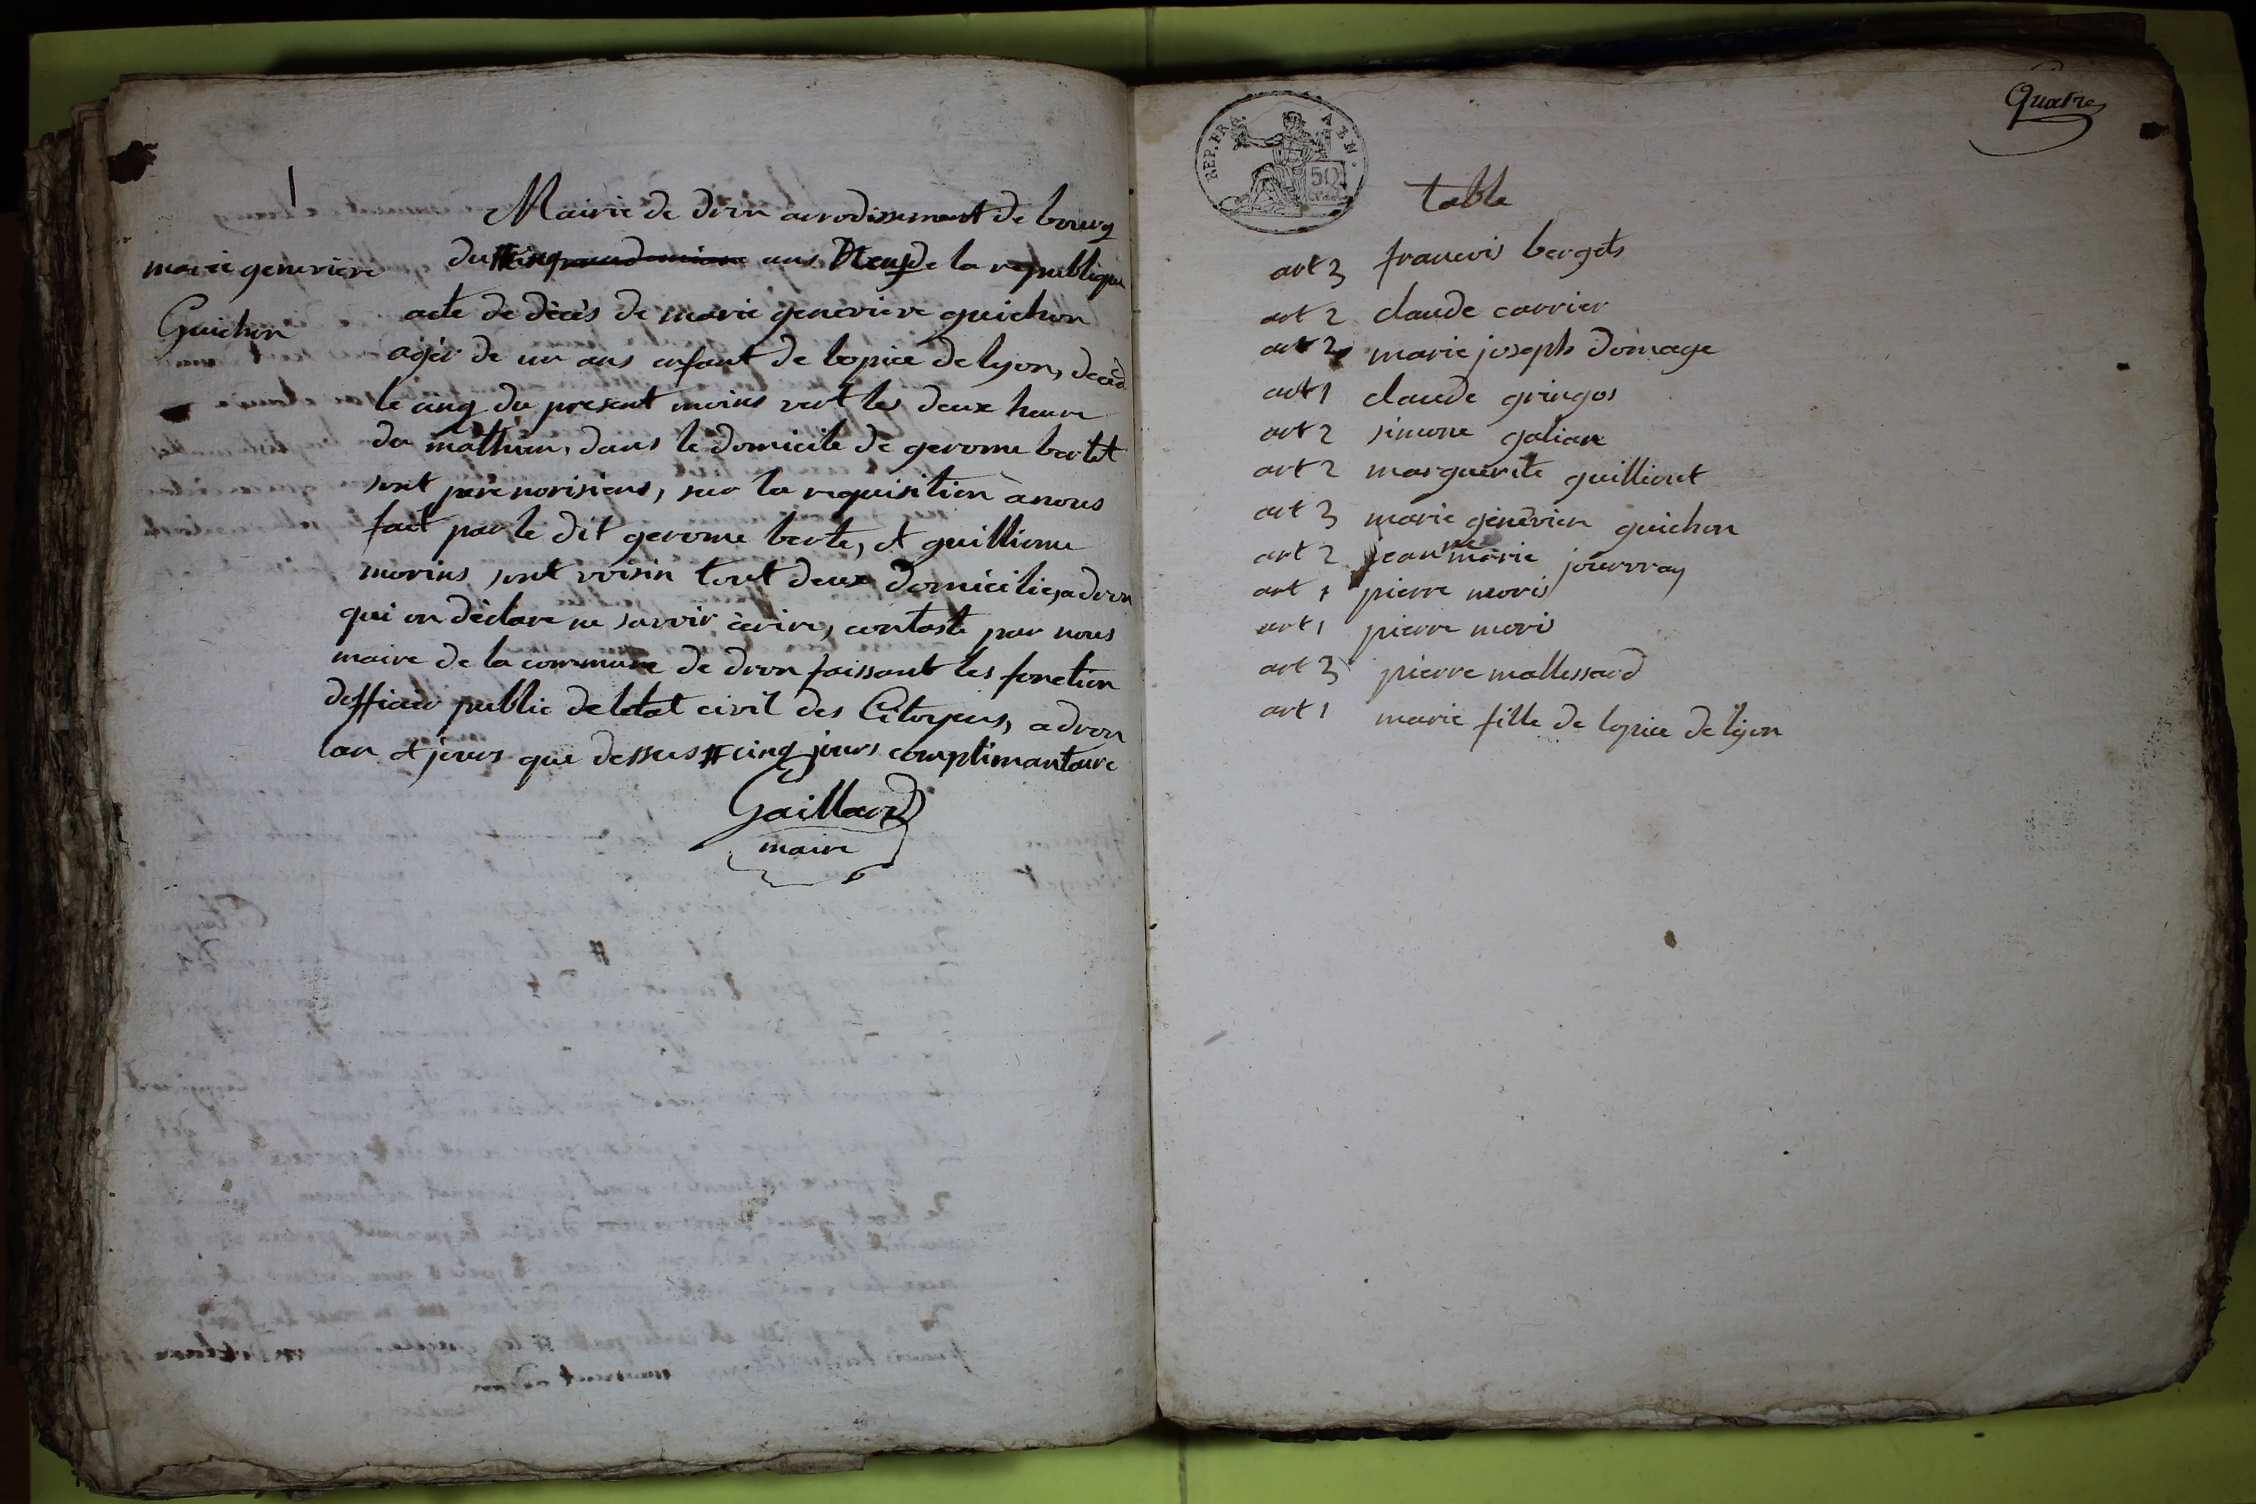 marie generière
Guichon
Mairie de dron arrodissement de bourg
du # cinq ans Neuf de la republique
acte de dècès de marie genevieve guichon
agér de un ans enfant de lopice de lyon, decéd
le cinq du present moins vert les deux heure
du mathein, dans le domicile de gerome bertet
sont pere norisiens, sur la requisition à nous
fait par le dit gerome berte, et guillieme
morins sont voisin tout deux domicilie, a dron
qui on dèclare ne savoir ècrire, contasté par nous
maire de la commune de dron faissant les fonction
dofficier public de letat civil des Citoyens, a dron
lan et jours que dessus # cinq jours complimantaire
Gaillard
maire
Quatre
REP. FRA.
50
table
art 3 francois bergets
art 2 claude carrier
art 2 marie joseph domage
art 1 claude gringos
art 2 simone galiane
art 2 marguerite guilliout
art 3 marie genèvien guichon
art 2 jeanne marie jourvray
art 1 pierre moris
art 1 pierre moris
art 3 pierre mallessard
art 1 marie fille de lopice de lyon